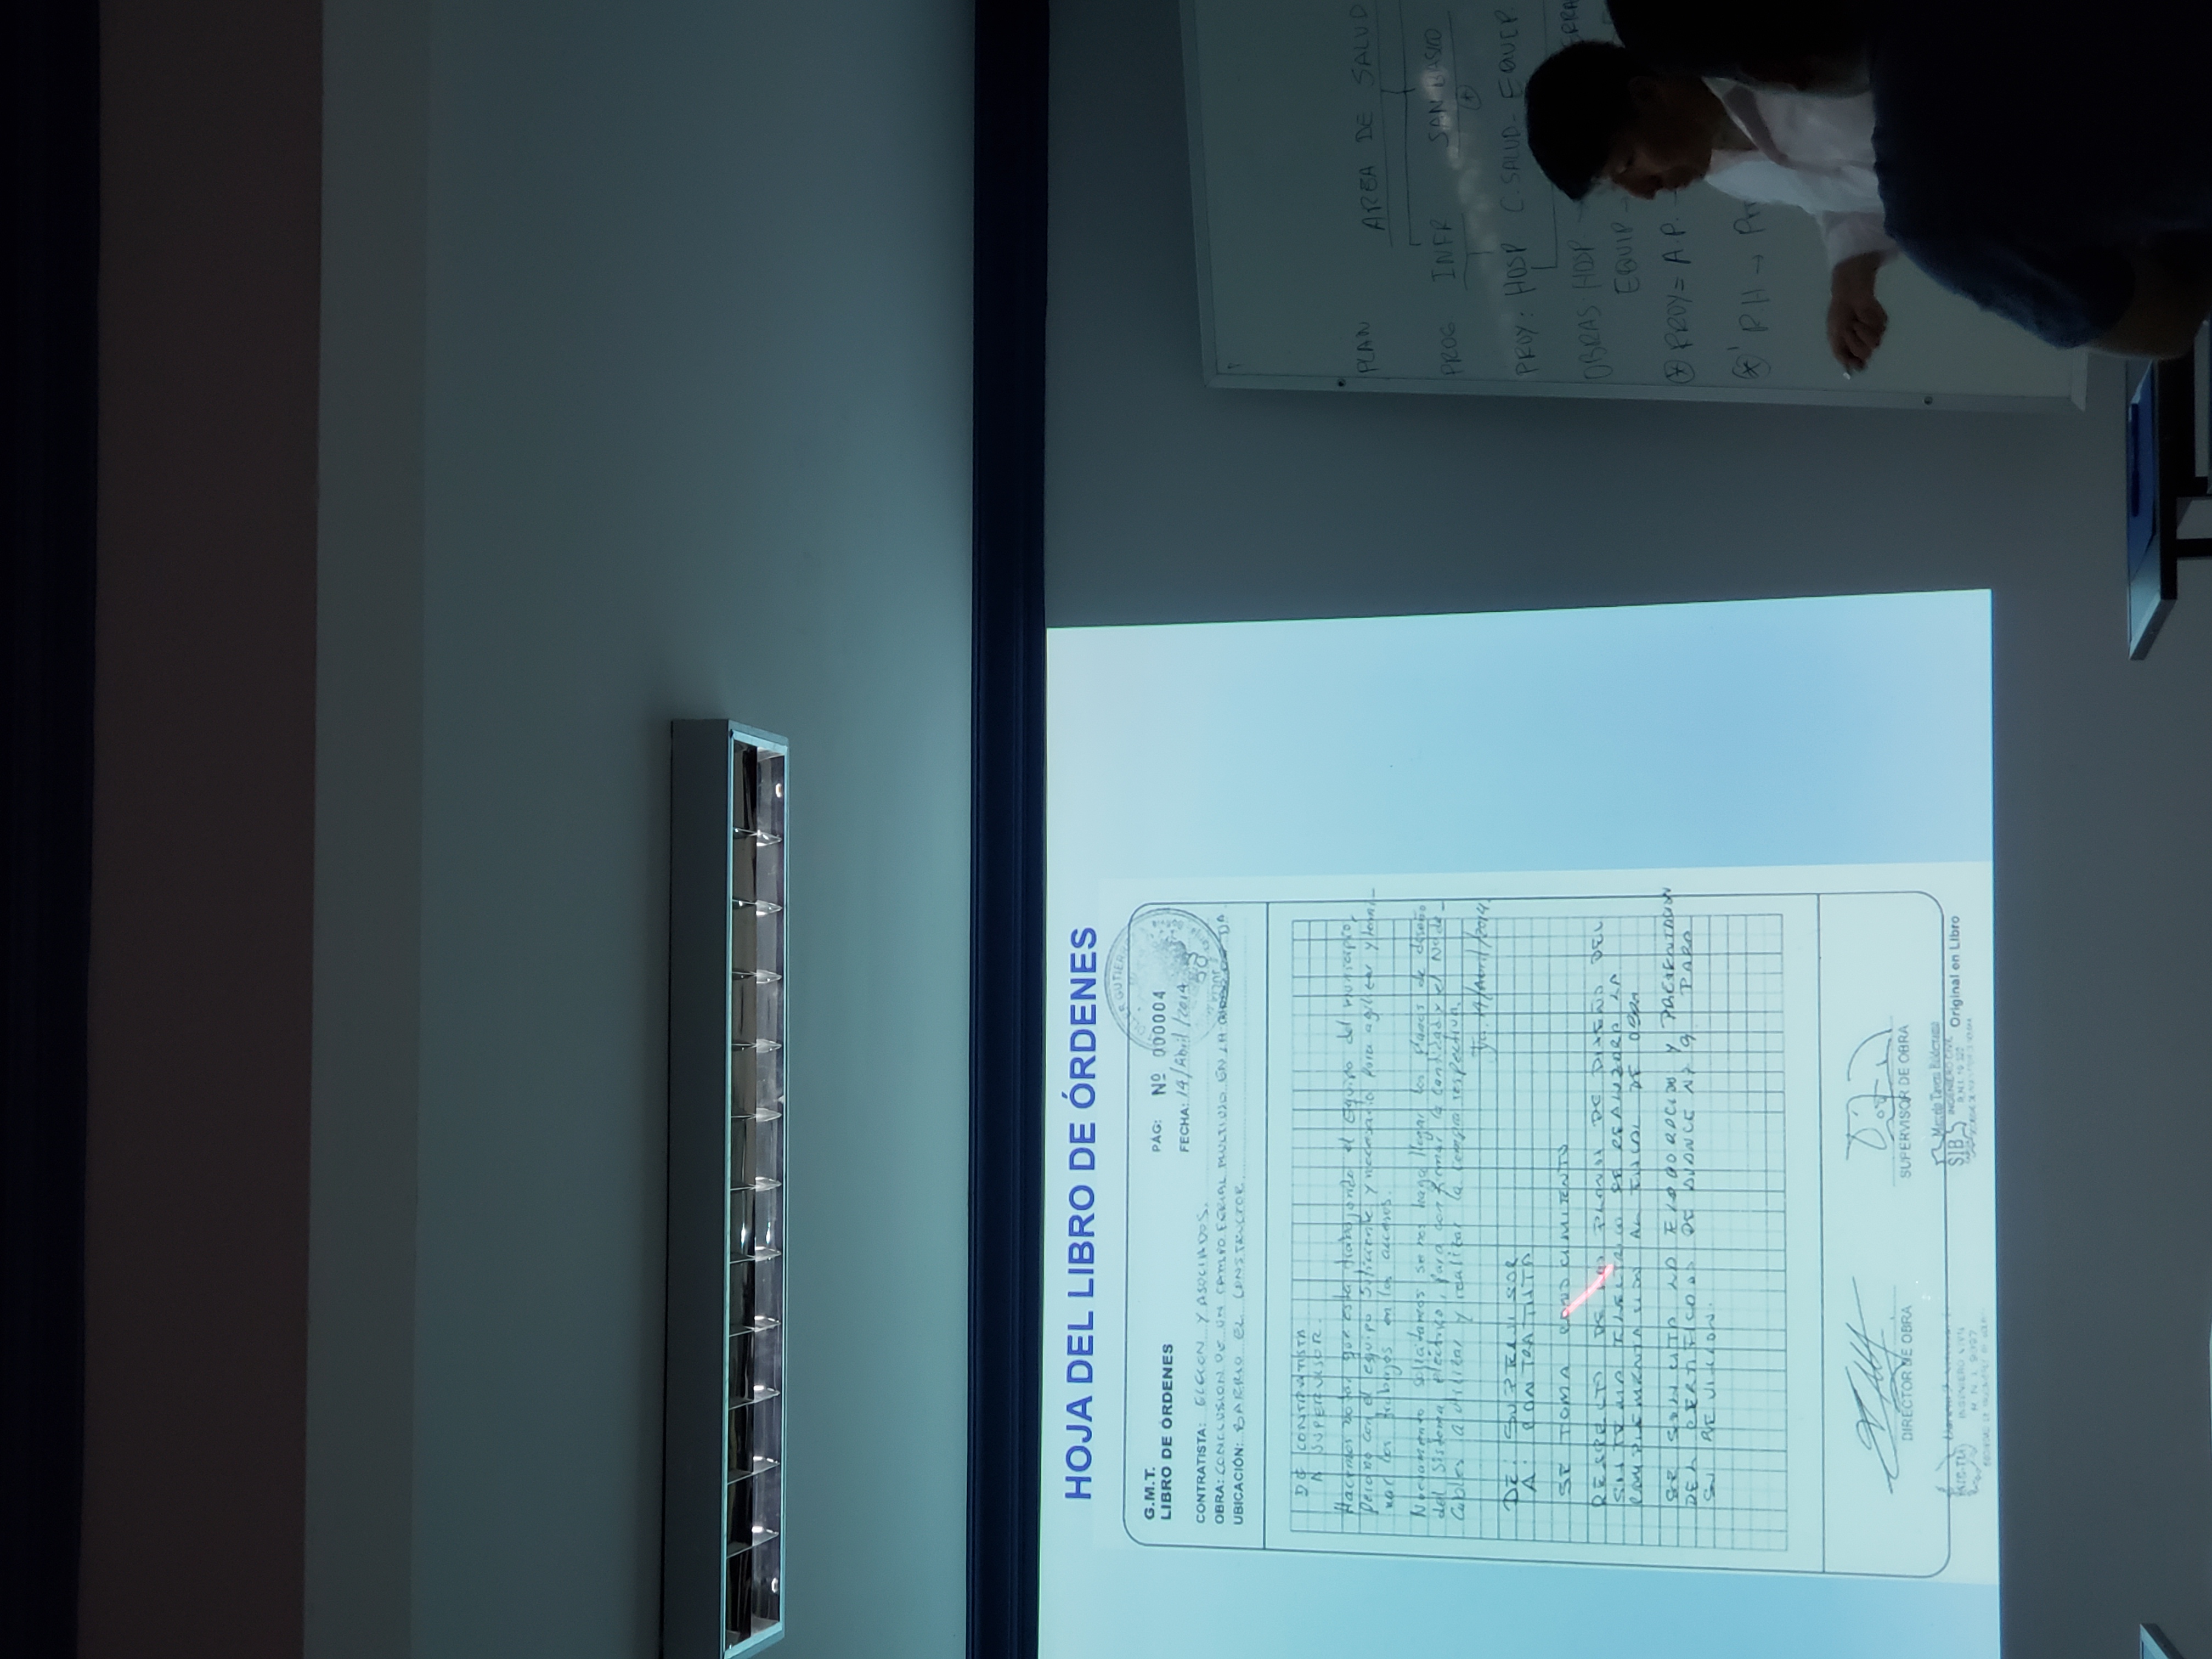 HOJA DEL LIBRO DE ÓRDENES
G.M.T.
LIBRO DE ÓRDENES
PÁG: Nº 000004
FECHA: 14/Abril/2014
CONTRATISTA: ELECON Y ASOCIADOS.
OBRA: CONCLUSION DE UN CAMPO FERIAL MULTIUSO EN LA
UBICACIÓN: BARRIO EL CONSTRUCTOR
DE CONTRATISTA
A SUPERVISOR.
Hacemos notar que esta trabajando el Equipo del municipio,
con el equipo suficiente y necesario para agilizar y termi-
nar los trabajos en los accesos.
Nuevamente solicitamos se nos haga llegar los planos de diseño
del Sistema eléctrico, para confirmar la cantidad y el No de
Cables a utilizar y realizar la compra respectiva.
14/Abril/2014.
DE: SUPERVISOR
A: CONTRATISTA
SE TOMA CONOCIMIENTO
RESPECTO DE LOS PLANOS DE DISEÑO DEL
SISTEMA ELECTRICO SE REALIZARA LA
COMPLEMENTACION AL FISCAL DE OBRA
SE SOLICITA LA ELABORACION Y PRESENTACION
DEL CERTIFICADO DE AVANCE Nº 9 PARA
SU REVISION.
DIRECTOR DE OBRA
SUPERVISOR DE OBRA
INGENIERO CIVIL
SIB
INGENIERO CIVIL
Original en Libro
PLAN AREA DE SALUD
PROG INFR SAN BASICO
PROY: HOSP C. SALUD - EQUIP.
OBRAS: HOSP
EQUIP
PROY = A.P.
R.H →